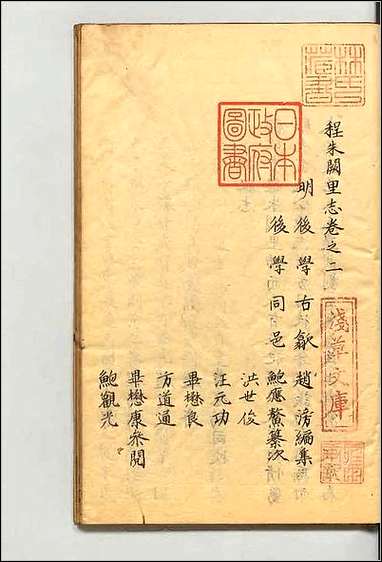 程朱闕里志卷之二
明後學古歙趙滂編集
後學同邑鮑應鰲纂次
洪世俊
汪元功
畢懋良
方道通
畢懋康參閱
鮑觀光
日本
政府
圖書
淺草文庫
林氏
藏書